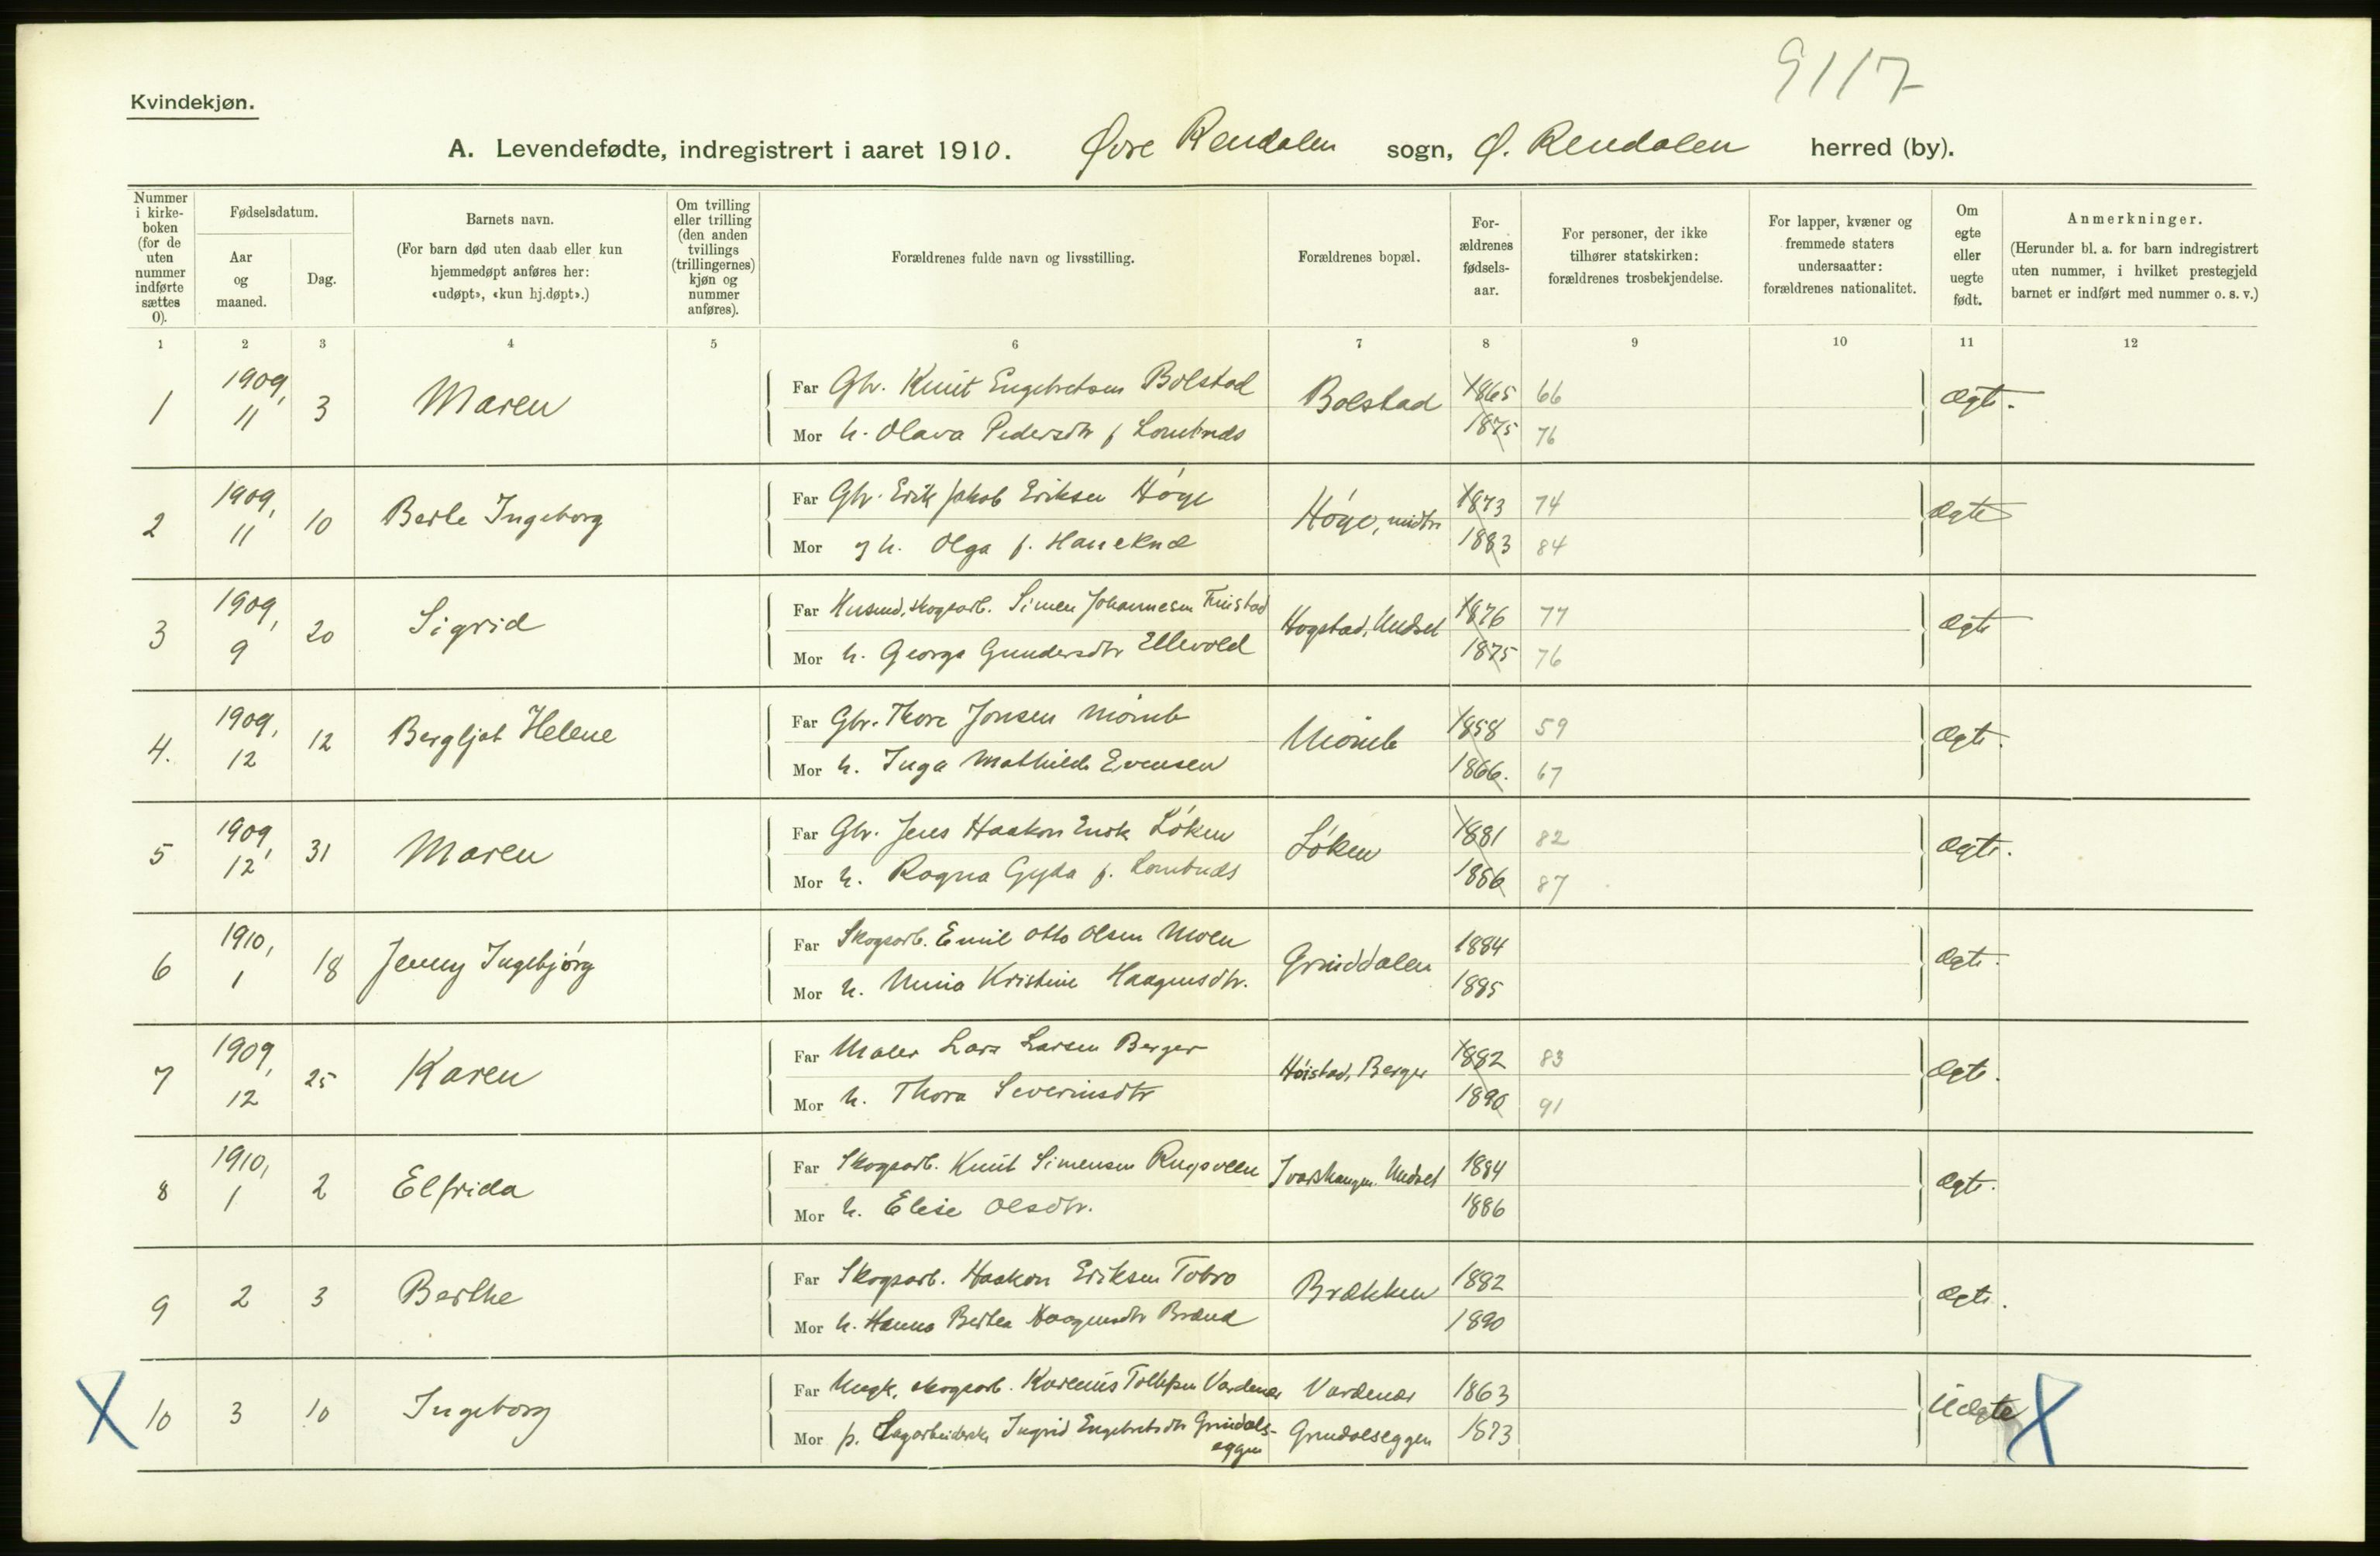 9117
Kvindekjøn.
A. Levendefødte, indregistrert i aaret 1910. Øvre Rendalen sogn, Ø. Rendalen herred (by).
Nummer i kirke-boken (for de uten nummer indførte sættes 0).
Fødselsdatum.
Aar og maaned.
Dag.
Barnets navn.
(For barn død uten daab eller kun hjemmedøpt anføres her: «udøpt», «kun hj.døpt».)
Om tvilling eller trilling (den anden tvillings (trillingernes) kjøn og nummer anføres).
Forældrenes fulde navn og livsstilling.
Forældrenes bopæl.
For-ældrenes fødsels-aar.
For personer, der ikke tilhører statskirken: forældrenes trosbekjendelse.
For lapper, kvæner og fremmede staters undersaatter: forældrenes nationalitet.
Om egte eller uegte født.
Anmerkninger.
(Herunder bl. a. for barn indregistrert uten nummer, i hvilket prestegjeld barnet er indført med nummer o. s. v.)
1 2 3 4 5 6 7 8 9 10 11 12
1 1909, 11 3 Maren Far Gbr. Knut Engebretsen Bolstad Bolstad 1865 66 Ægte.
Mor h. Olava Pedersdtr f. Lombnæs 1875 76
2 1909, 11 10 Berte Ingeborg Far Gbr. Erik Jakob Eriksen Høye Høye, midtre 1873 74 Ægte
Mor og h. Olga f. Haneknæ 1883 84
3 1909, 9 20 Sigrid Far Husmd, skogsarb. Simen Johannesen Finstad Hogstad, Undset 1876 77 Ægte
Mor h. Georga Gundersdtr Ellevold 1875 76
4. 1909, 12 12 Bergljot Helene Far Gbr. Thore Jonsen Mømb Mømb 1858 59 Ægte.
Mor h. Inga Mathilde Evensen 1866. 67
5 1909, 12 31 Maren Far Gbr. Jens Haakon Løken Løken 1881 82 Ægte.
Mor h. Ragna Gyda f. Lombnæs 1886 87
6 1910, 1 18 Jenny Ingebjørg Far Skogsarb. Emil Otto Olsen Moen Grinddalen 1884 Ægte.
Mor h. Mina Kristine Haagensdtr. 1885
7 1909, 12 25 Karen Far Maler Lars Larsen Berger Høistad, Berger 1882 83 Ægte.
Mor h. Thora Severinsdtr 1890 91
8 1910, 1 2 Elfrida Far Skogsarb. Knut Simensen Rugsveen Undset 1884 Ægte.
Mor h. Elise Olsdtr. 1886
9 2 3 Berthe Far Skogsarb. Haakon Eriksen Tobro Brækken 1882 Ægte.
Mor h. Hanna Berthea Haagensdtr Brænd 1890
X 10 3 10 Ingeborg Far Ungk, skogsarb. Karenus Tollefsen Vardenær Vardenær 1863 Uægte X
Mor p. Ingrid Engebretsdtr Grindalseggen Grindalseggen 1873